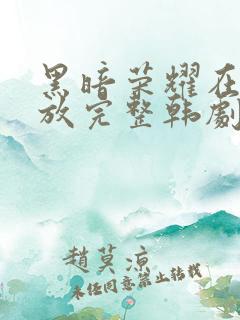 黑暗荣耀在
放完整韩劇
趙莫凉
未经同意禁止转载